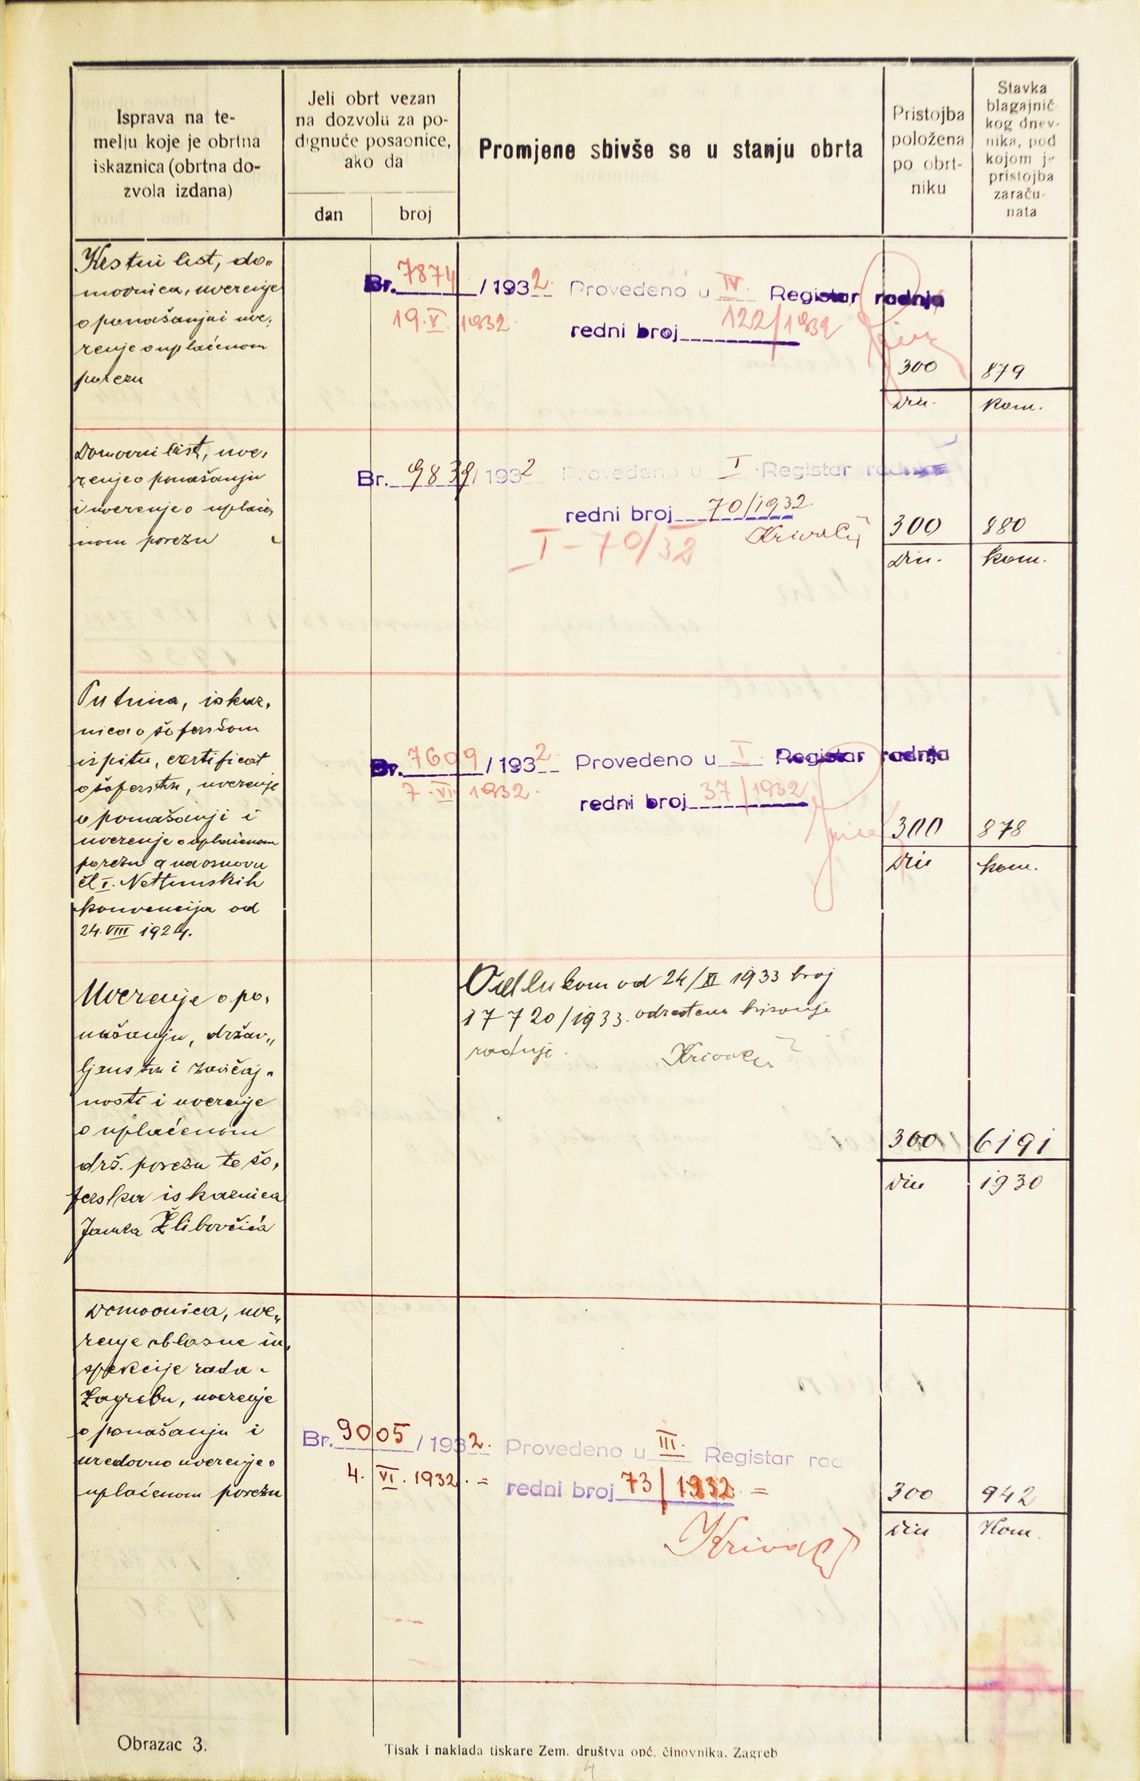 Isprava na te-
melju koje je obrtna
iskaznica (obrtna do-
zvola izdana)
Jeli obrt vezan
na dozvolu za po-
dignuće posaonice,
ako da
dan
broj
Promjene sbivše se u stanju obrta
Pristojba
položena
po obrt-
niku
Stavka
blagajnič-
kog dnev-
nika, pod
kojom je
pristojba
zaraču-
nata
Krstni list, do„
movnica, uverenje
o ponašanju i uve„
renje o uplaćenom
porezu
Br. 7874/1932
19.V.1932.
Provedeno u IV. Registar radnja
redni broj 122/1932
300
din.
879
kom.
Domovni list, uve„
renje o ponašanju
i uverenje o uplaće„
nom porezu
Br. 9839/1932
Provedeno u I. Registar radnja
redni broj 70/1932.
I-70/32
300
din.
880
kom.
Putnica, iskaz„
nica o šoferskom
ispitu, certificat
o šoferstvu, uverenje
o ponašanji i
uverenje o uplaćenom
porezu a na osnovu
čl I. Nettunskih
konvencija od
24.VIII 1924.
Br. 7609/1932
7.VI.1932.
Provedeno u I. Registar radnja
redni broj 37/1932
300
din
878
kom.
Uverenje o po„
našanju, držav„
ljanstvu i zavičaj„
nosti i uverenje
o uplaćenom
drž. porezu te šo„
ferska iskaznica
Janka Žlibovčića
Odlukom od 24/XI 1933 broj
17720/1933. određeno brisanje
radnje.
300
din
6191
1930
Domovnica, uve„
renje oblasne in„
spekcije rada -
Zagrebu, uverenje
o ponašanju i
uredovno uverenje o
uplaćenom porezu
Br. 9005/1932.
4.VI.1932. =
Provedeno u III. Registar rad
redni broj 73/1932. =
300
din
942
Kom.
Obrazac 3.
Tisak i naklada tiskare Zem. društva opć. činovnika. Zagreb